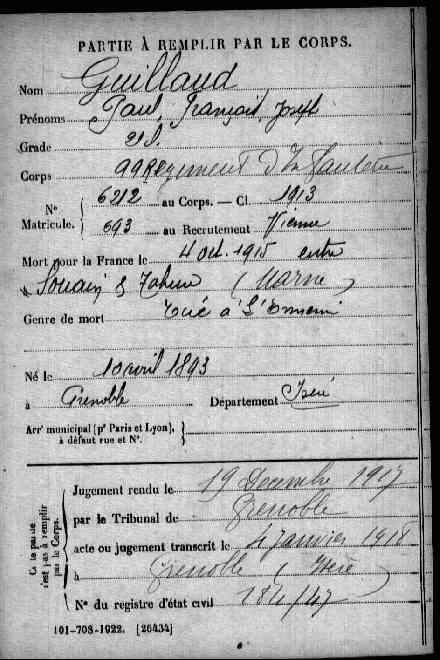 PARTIE À REMPLIR PAR LE CORPS.
Nom Guillaud
Prénoms Paul, François, Joseph
Grade 2 cl.
Corps 99 Régiment D'Infanterie
N° Matricule. { 6212 au Corps. — Cl. 1913
693 au Recrutement Vienne
Mort pour la France le 4 oct. 1915 entre
à Souain & Tahure (Marne)
Genre de mort Tué à l'Ennemi
Né le 10 avril 1893
à Grenoble Département Isère
Arr' municipal (p' Paris et Lyon), à défaut rue et N°. }
Cette partie n'est pas à remplir par le Corps.
Jugement rendu le 19 Décembre 1917
par le Tribunal de Grenoble
acte ou jugement transcrit le 4 janvier 1918
à Grenoble (Isère)
N° du registre d'état civil 184/47
101-708-1922. [26434]